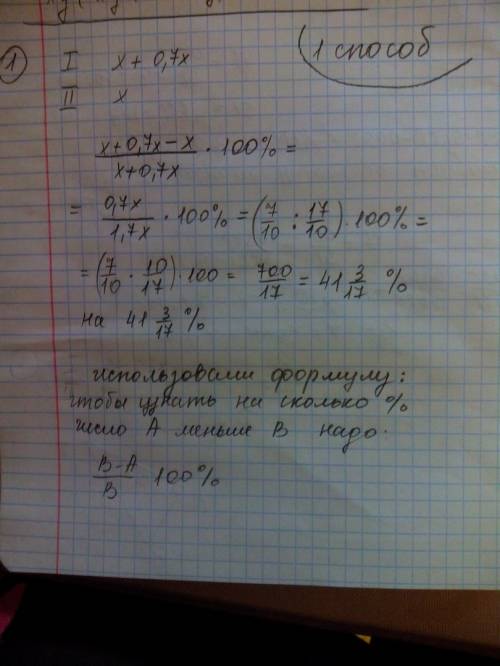 (1 способ
① I x + 0,7x
II x
(x+0,7x-x)/(x+0,7x) · 100% =
= 0,7x/1,7x · 100% = (7/10 : 17/10) · 100% =
= (7/10 · 10/17) · 100 = 700/17 = 41 3/17 %
на 41 3/17 %
использовали формулу:
чтобы узнать на сколько %
число A меньше B надо.
(B-A)/B 100%